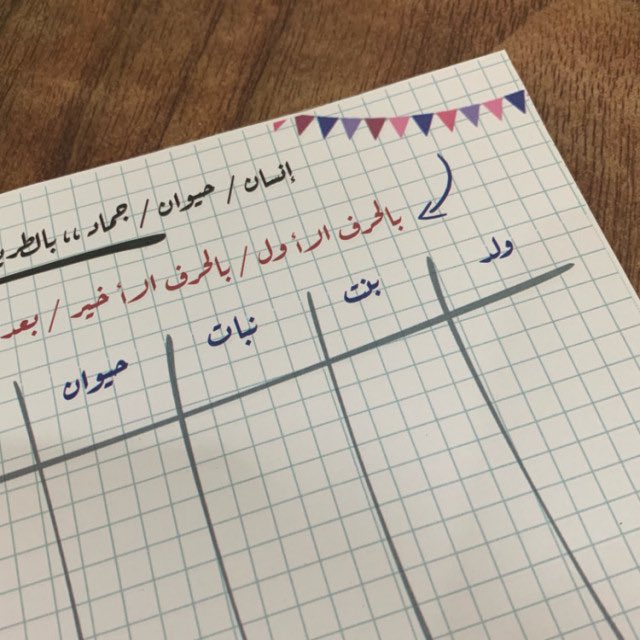 إنسان / حيوان / جماد ،، بالطري
بالحرف الأول / بالحرف الأخير / بعد
ولد بنت نبات حيوان